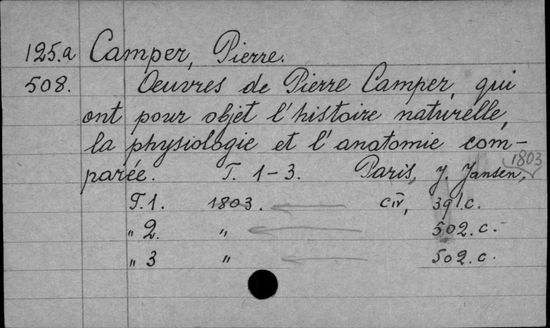 125.a Camper, Pierre.
508. Oeuvres de Pierre Camper, qui
ont pour objet l'histoire naturelle,
la physiologie et l'anatomie com-
parée. T. 1-3. Paris, J. Jansen, 1803
T. 1. 1803. CIV, 391 c.
" 2. " 502. c.
" 3 " 502. c.